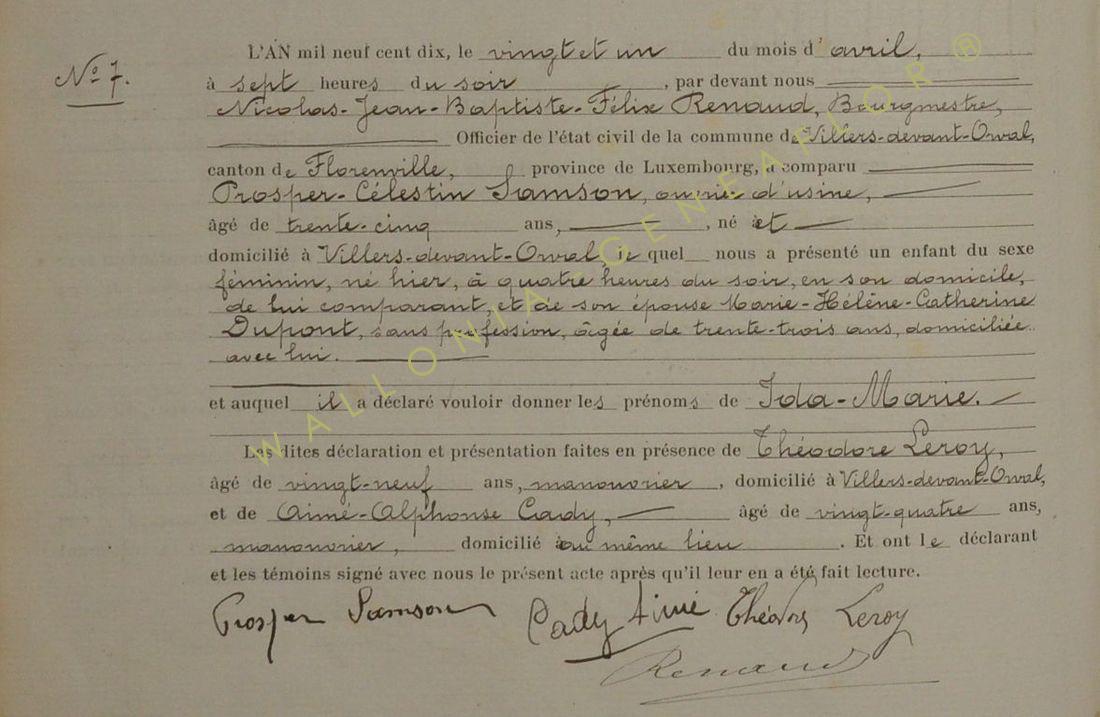 L'AN mil neuf cent dix, le vingt et un du mois d'avril,
N° 7.
à sept heures du soir, par devant nous
Nicolas-Jean-Baptiste-Félix Renaud, Bourgmestre,
Officier de l'état civil de la commune de Villers-devant-Orval,
canton de Florenville, province de Luxembourg, a comparu
Prosper-Célestin Samson, ouvrier d'usine,
âgé de trente-cinq ans, né et
domicilié à Villers-devant-Orval lequel nous a présenté un enfant du sexe
féminin, né hier, à quatre heures du soir, en son domicile,
de lui comparant, et de son épouse Marie-Hélène-Catherine
Dupont, sans profession, âgée de trente-trois ans, domiciliée
avec lui.
et auquel il a déclaré vouloir donner les prénoms de Ida-Marie.
Les dites déclaration et présentation faites en présence de Théodore Leroy,
âgé de vingt-neuf ans, manouvrier, domicilié à Villers-devant-Orval,
et de Aimé-Alphonse Cady, âgé de vingt-quatre ans,
manouvrier, domicilié au même lieu. Et ont le déclarant
et les témoins signé avec nous le présent acte après qu'il leur en a été fait lecture.
Prosper Samson Cady Aimé Théodore Leroy
Renaud
WALLONIA-GENEAFLOR ®